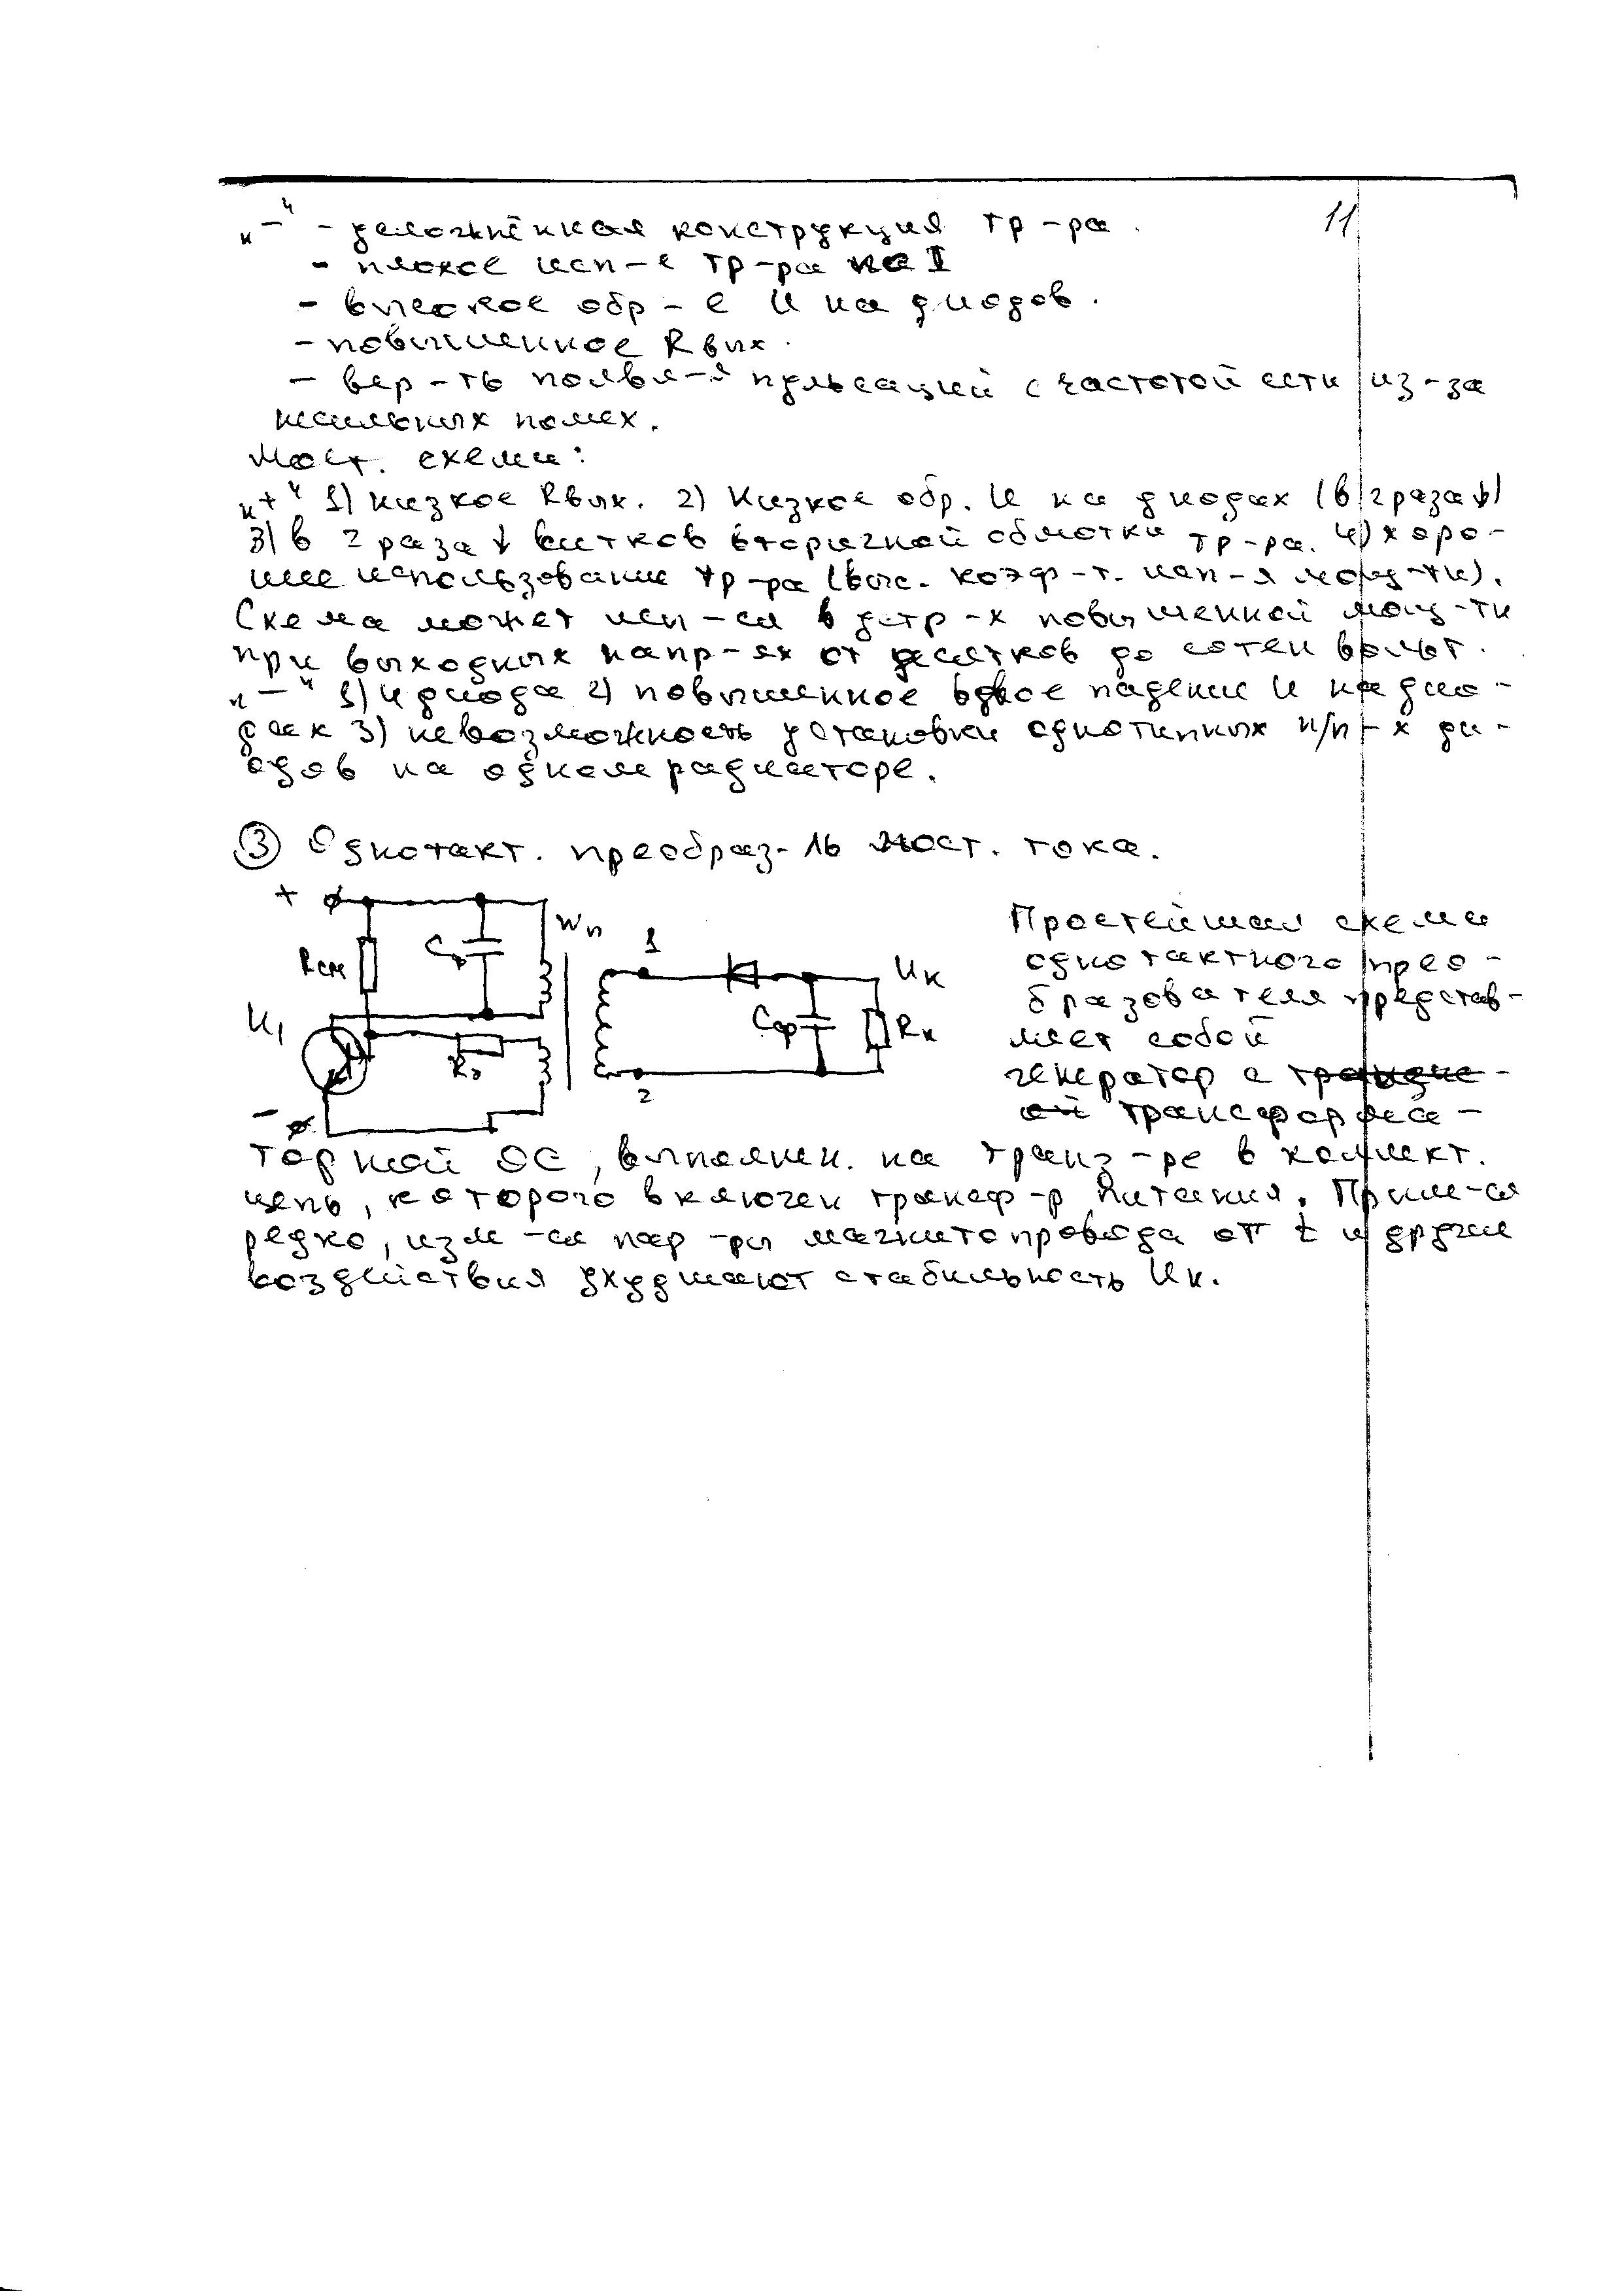 11
„−“ - усложнённая конструкция тр-ра.
- плохое исп-е тр-ра на I
- высокое обр-е U на диодов.
- повышенное Rвых.
- вер-ть появл-я пульсаций с частотой сети из-за
сильных помех.
Мост. схема:
„+“ 1) низкое Rвых. 2) Низкое обр. U на диодах (в 2 раза↓)
3) в 2 раза ↓ витков вторичной обмотки тр-ра. 4) хоро-
шее использование тр-ра (выс. коэф-т. исп-я мощ-ти).
Схема может исп-ся в устр-х повышенной мощ-ти
при выходных напр-ях от десятков до сотен вольт.
„−“ 1) 4 диода 2) повышенное вдвое падение U на дио-
дах 3) невозможность установки однотипных п/п-х ди-
одов на одном радиаторе.
③ Однотакт. преобраз-ль пост. тока.
+
Wп
1
Rсм
Cр
Uн
U1
Cф
Rн
Rэ
−
2
Простейшая схема
однотактного прео-
бразователя представ-
ляет собой
генератор с
трансформа-
торной ОС, выполнен. на транз-ре в коллект.
цепь, которого включен трансф-р питания. Прим-ся
редко, изм-ся пар-ры магнитопровода от t и другие
воздействия ухудшают стабильность Uн.